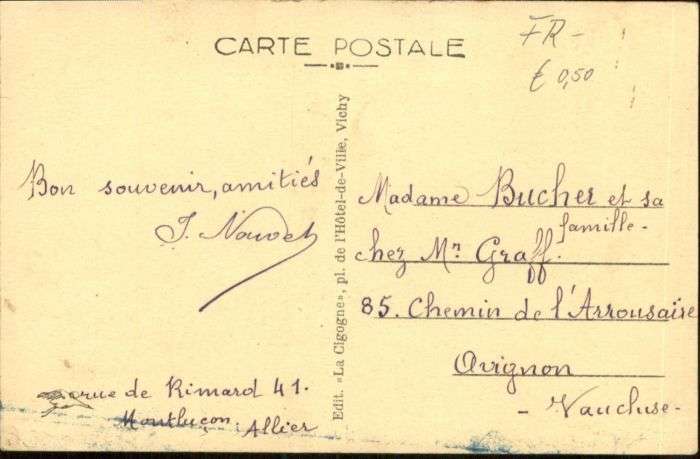 CARTE POSTALE
FR-
€ 0,50
Bon souvenir, amitiés
Edit. «La Cigogne», pl. de l'Hôtel-de-Ville, Vichy
Madame Bucher et sa
famille-
chez Mr. Graff.
85. Chemin de l'Arrousaire
Avignon
- Vaucluse-
rue de Rimard 41.
Montluçon. Allier